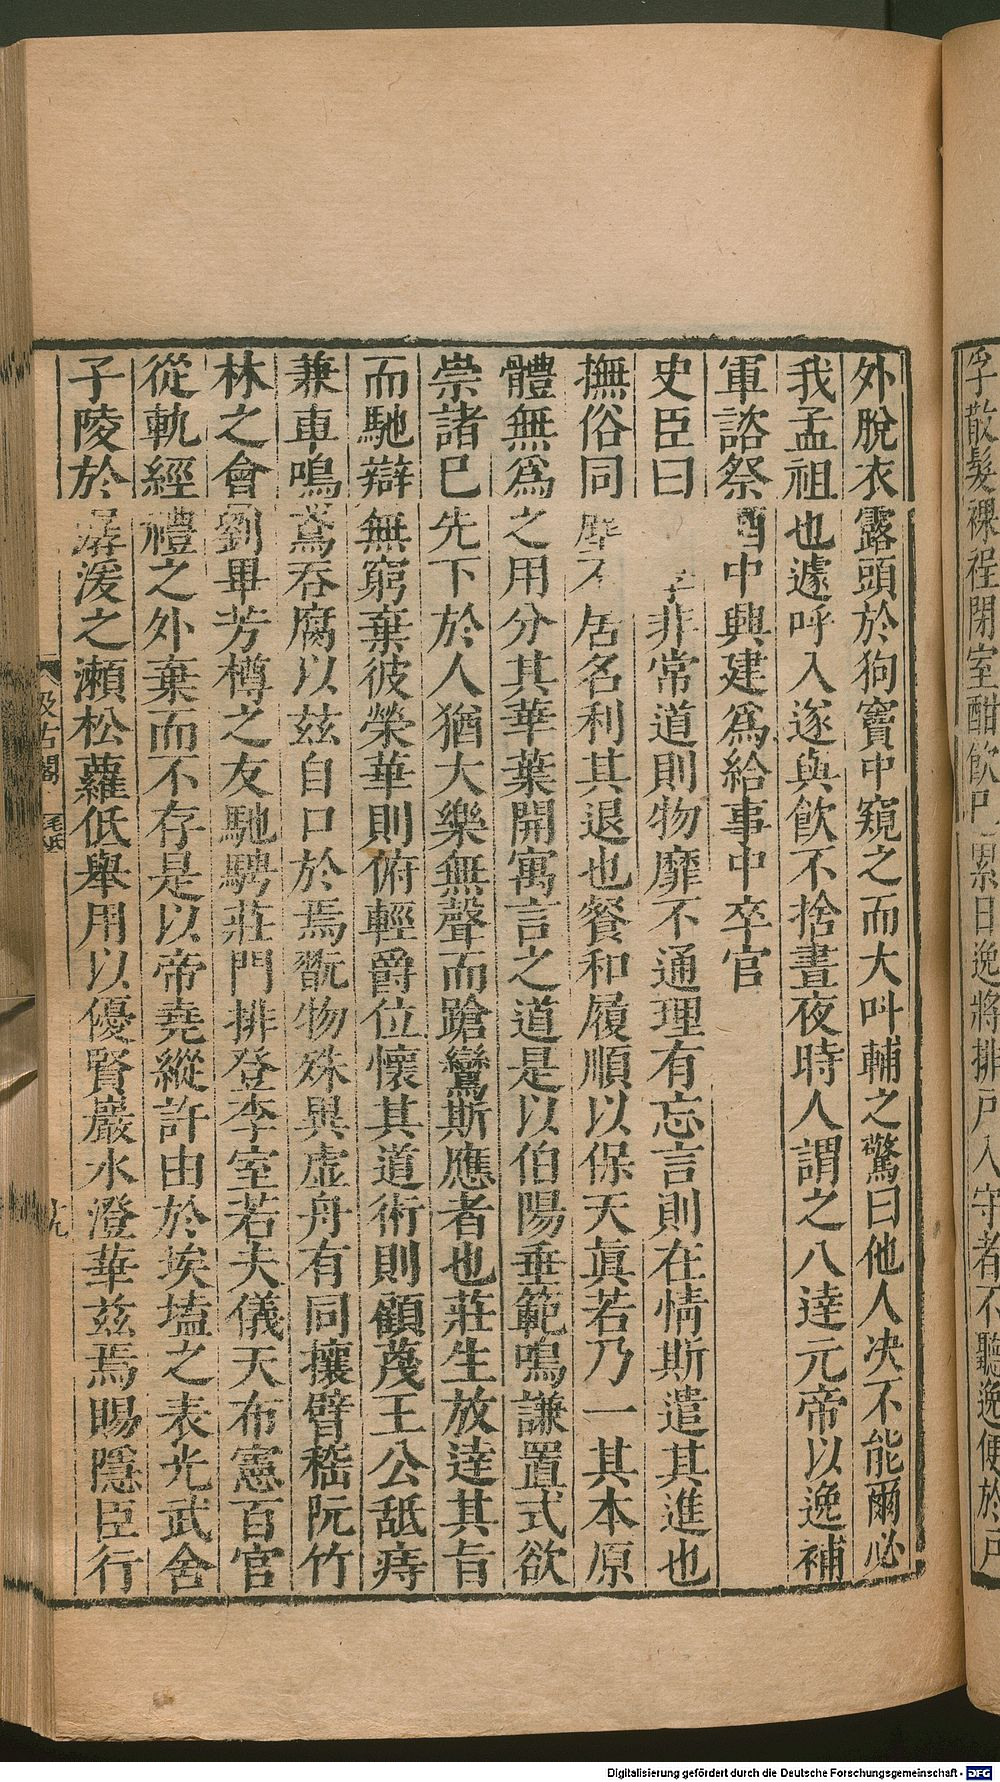 孚散髮裸裎閉室酣飲已累日逸將排戸入守者不聽逸便於戸
外脫衣露頭於狗竇中窺之而大叫輔之驚曰他人决不能爾必
我孟祖也遽呼入遂與飲不捨晝夜時人謂之八達元帝以逸補
軍諮祭酒中興建爲給事中卒官
史臣曰 非常道則物靡不通理有忘言則在情斯遣其進也
撫俗同 不居名利其退也餐和履順以保天眞若乃一其本原
體無爲之用分其華葉開寓言之道是以伯陽垂範鳴謙置式欲
崇諸巳先下於人猶大樂無聲而蹌鸞斯應者也莊生放達其旨
而馳辯無窮棄彼榮華則俯輕爵位懷其道術則顧蔑王公舐痔
兼車鳴鳶吞腐以兹自口於焉翫物殊異虚舟有同攘臂嵇阮竹
林之會劉畢芳樽之友馳騁莊門排登李室若夫儀天布憲百官
從軌經禮之外棄而不存是以帝堯縱許由於埃壒之表光武舍
子陵於潺湲之瀨松蘿低舉用以優賢巖水澄華兹焉賜隱臣行
汲古閣
毛氏
十九
Digitalisierung gefördert durch die Deutsche Forschungsgemeinschaft - DFG